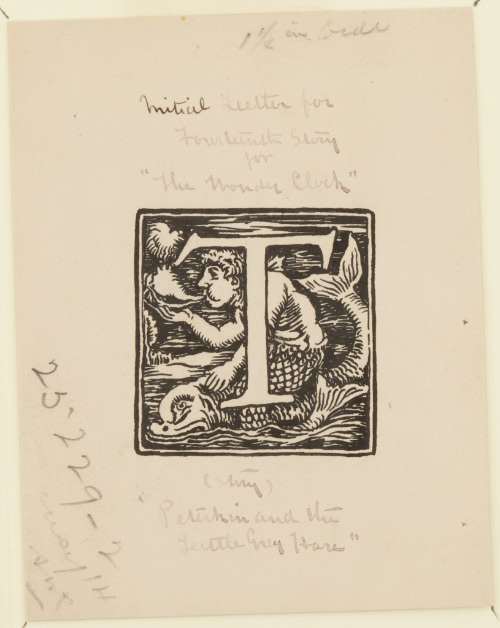 1 1/2 in wide
Initial Letter for
Fourteenth Story
for
"The Wonder Clock"
T
(Story)
"Peterkin and the
Little Grey Hare"